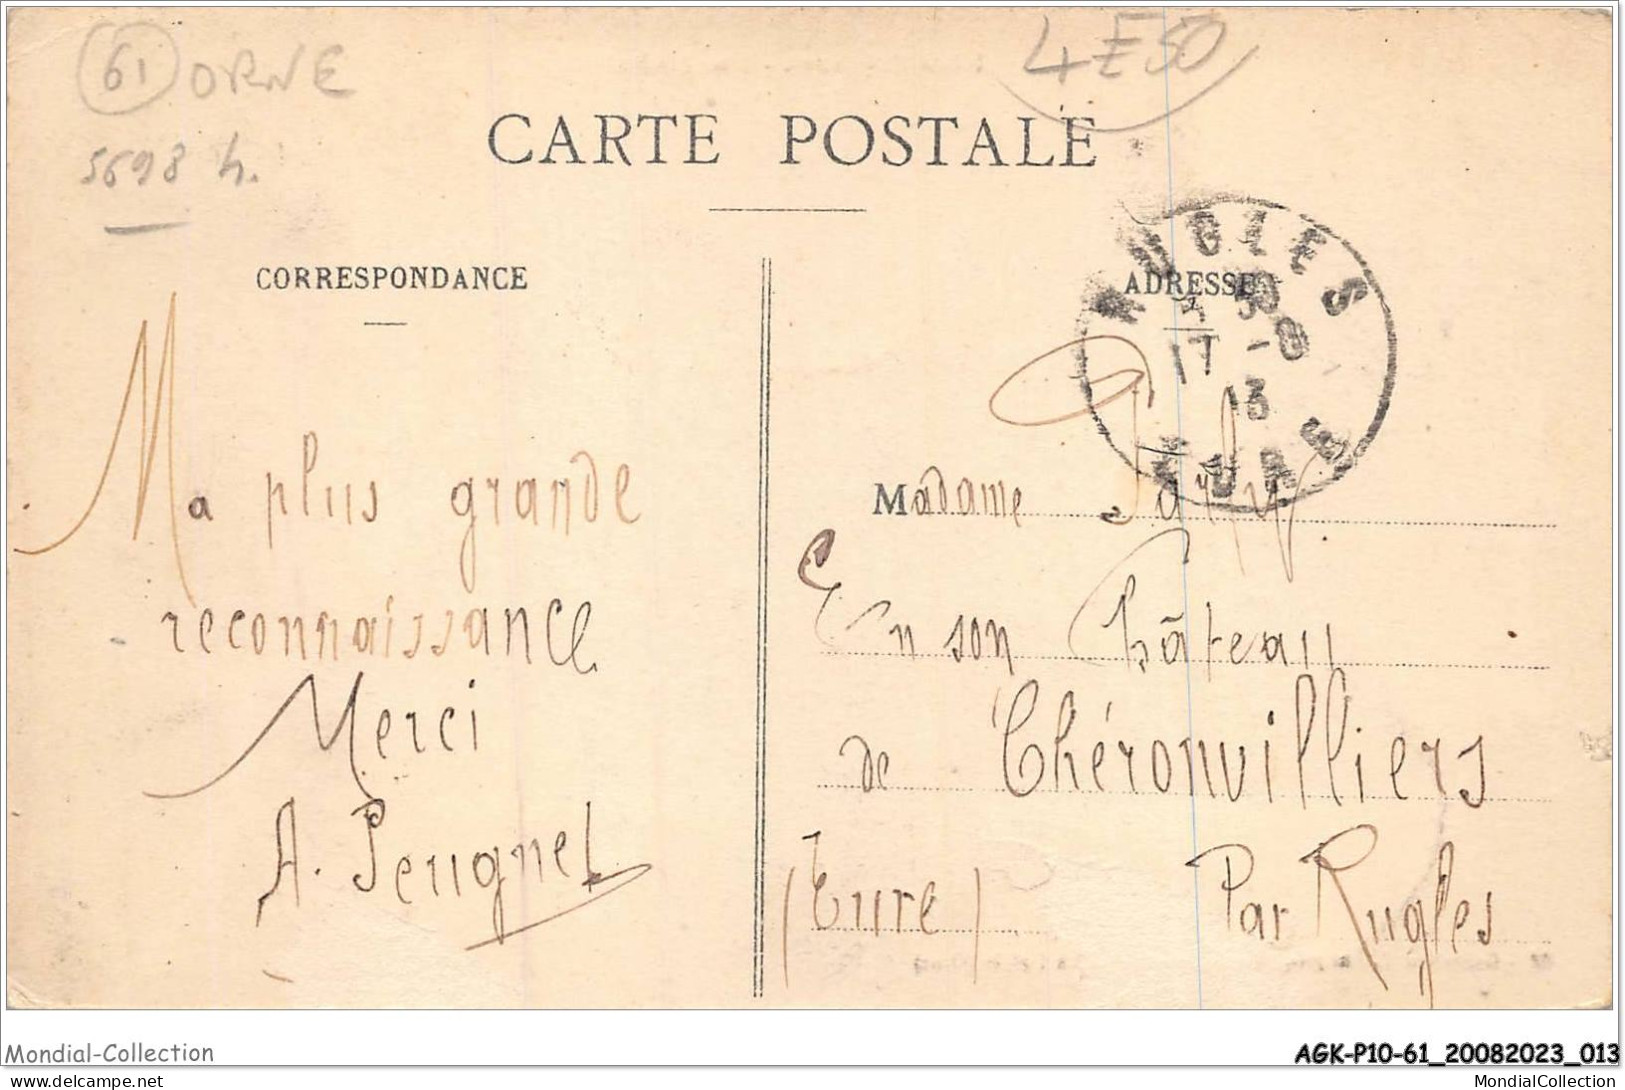 61 ORNE
5698 h.
4E50
CARTE POSTALE
CORRESPONDANCE
ADRESSE
RUGLES
17 -8
13
EURE
Ma plus grande
reconnaissance
Merci
A. Peugnet
Madame
En son Château
de Chéronvilliers
(Eure) Par Rugles
Mondial-Collection
AGK-P10-61_20082023_013
delcampe.net
MondialCollection